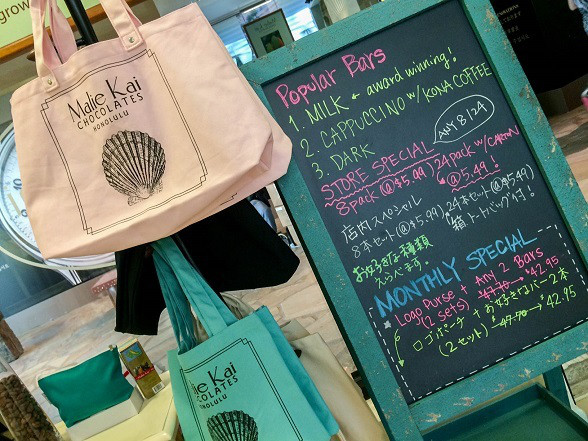 grow
Malie Kai
CHOCOLATES
HONOLULU
lie Kai
COLATES
NOLULU
Popular Bars
1. MILK ← award winning!
2. CAPPUCCINO w/ KONA COFFEE
3. DARK
ANY 8/24
STORE SPECIAL
8 Pack (@$5.99) 24 pack w/ CARTON
@ 5.49!
店内スペシャル
8本セット(@$5.99) 24本セット(@$5.49)
箱、トートバッグ付き!
お好きな種類
えらべます。
MONTHLY SPECIAL
Logo Purse + Any 2 Bars
(2 sets) 47.70 → $42.95
ロゴポーチ + お好きなバー2本
(2セット) $47.70 → $42.95